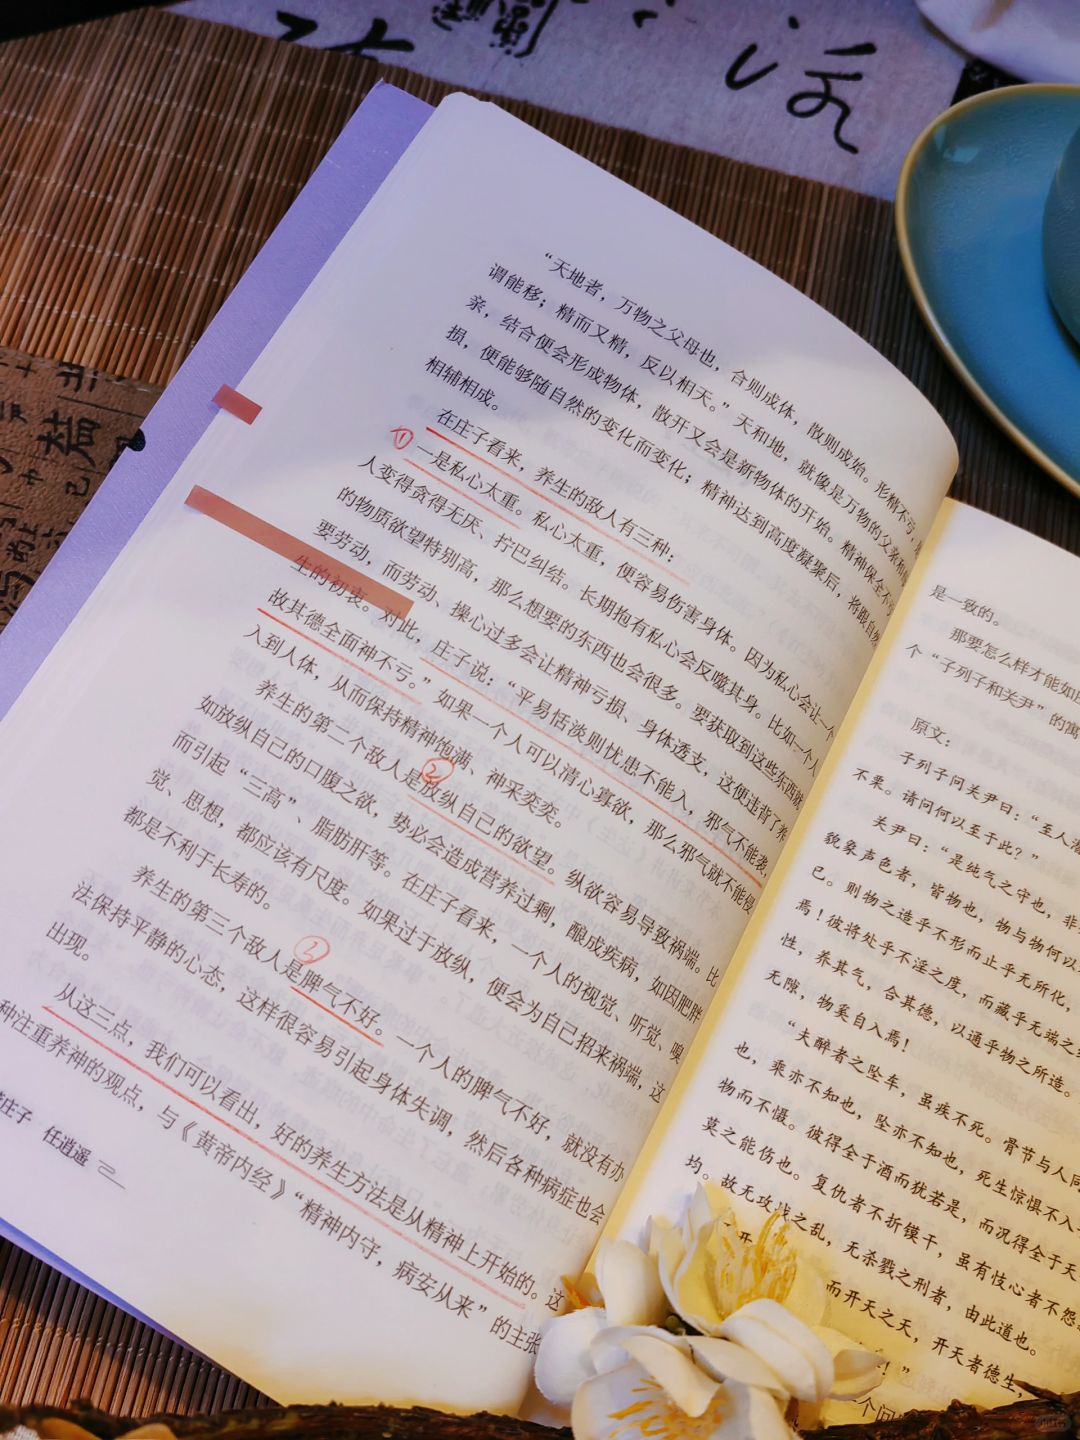 活
益
“天地者，万物之父母也，合则成体，散则成始。形精不亏，是
谓能移；精而又精，反以相天。”天和地，就像是万物的父亲和母
亲，结合便会形成物体，散开又会是新物体的开始。精神保全不亏
损，便能够随自然的变化而变化；精神达到高度凝聚后，将跟自然
相辅相成。
在庄子看来，养生的敌人有三种：
①一是私心太重。私心太重，便容易伤害身体。因为私心会让一个
人变得贪得无厌、拧巴纠结。长期抱有私心会反噬其身。比如一个人
的物质欲望特别高，那么想要的东西也会很多。要获取到这些东西就
要劳动，而劳动、操心过多会让精神亏损、身体透支，这便违背了养
生的初衷。对此，庄子说：“平易恬淡则忧患不能入，邪气不能袭，
故其德全面神不亏。”如果一个人可以清心寡欲，那么邪气就不能侵
入到人体，从而保持精神饱满、神采奕奕。
②
养生的第二个敌人是放纵自己的欲望。纵欲容易导致祸端。比
如放纵自己的口腹之欲，势必会造成营养过剩，酿成疾病，如因肥胖
而引起“三高”、脂肪肝等。在庄子看来，一个人的视觉、听觉、嗅
觉、思想，都应该有尺度。如果过于放纵，便会为自己招来祸端，这
都是不利于长寿的。
③
养生的第三个敌人是脾气不好。一个人的脾气不好，就没有办
法保持平静的心态，这样很容易引起身体失调，然后各种病症也会
出现。
从这三点，我们可以看出，好的养生方法是从精神上开始的。这
种注重养神的观点，与《黄帝内经》“精神内守，病安从来”的主张
庄子 任逍遥
是一致的。
那要怎么样才能如
个“子列子和关尹”的寓
原文：
子列子问关尹曰：“至人潜
不栗。请问何以至于此？”
关尹曰：“是纯气之守也，非
貌象声色者，皆物也，物与物何以
已。则物之造乎不形而止乎无所化，
焉！彼将处乎不淫之度，而藏乎无端之
性，养其气，合其德，以通乎物之所造。
无隙，物奚自入焉！
“夫醉者之坠车，虽疾不死。骨节与人同
也，乘亦不知也，坠亦不知也，死生惊惧不入
物而不慑。彼得全于酒而犹若是，而况得全于天
莫之能伤也。复仇者不折镆干，虽有忮心者不怨
均。故无攻战之乱，无杀戮之刑者，由此道也。
而开天之天，开天者德生，
！”
一个问